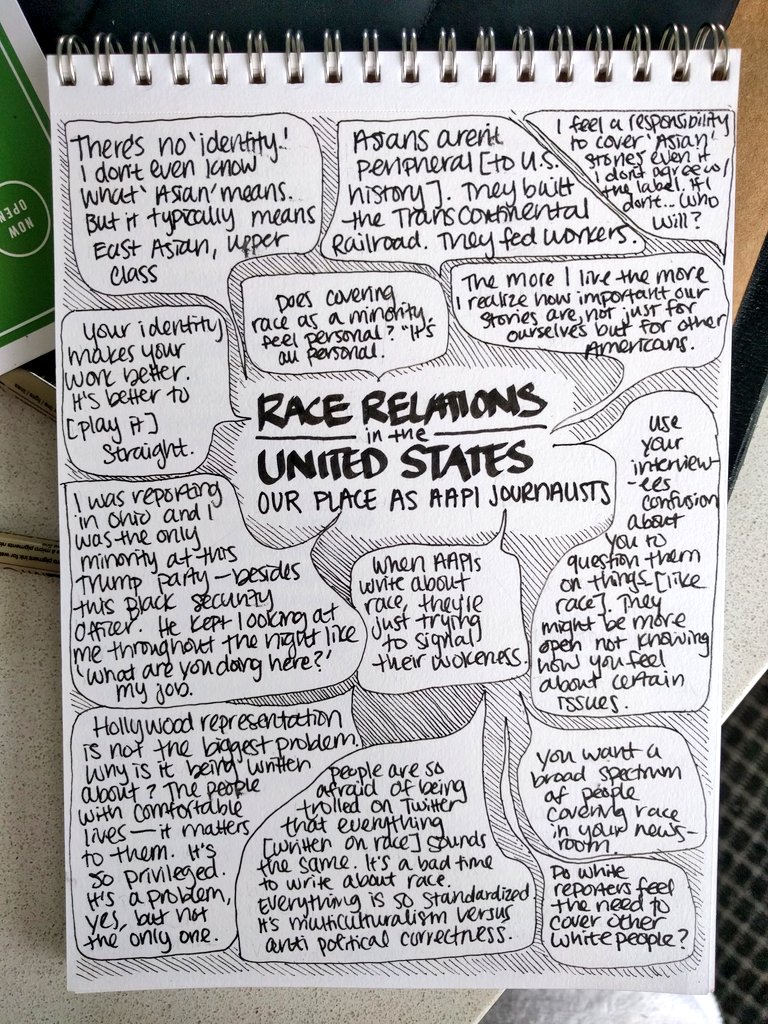 There's no 'identity.'
I don't even know
what 'Asian' means.
But it typically means
East Asian, upper
class
Asians aren't
peripheral [to U.S.
history]. They built
the Transcontinental
Railroad. They fed workers.
I feel a responsibility
to cover 'Asian'
stories even if
I don't agree w/
the label. If I
don't... who
will?
NOW
OPEN
Your identity
makes your
work better.
It's better to
[play it]
straight.
Does covering
race as a minority
feel personal? "It's
all personal.
The more I live the more
I realize how important our
stories are, not just for
ourselves but for other
Americans.
RACE RELATIONS
in the
UNITED STATES
OUR PLACE AS AAPI JOURNALISTS
use
your
interview-
-ees
confusion
about
you to
question them
on things [like
race]. They
might be more
open not knowing
how you feel
about certain
issues.
I was reporting
in Ohio and I
was the only
minority at this
Trump party — besides
this Black security
officer. He kept looking at
me throughout the night like
'what are you doing here?'
my job.
When AAPIs
write about
race, they're
just trying
to signal
their wokeness.
Hollywood representation
is not the biggest problem.
Why is it being written
about? The people
with comfortable
lives — it matters
to them. It's
so privileged.
It's a problem,
yes, but not
the only one.
People are so
afraid of being
trolled on Twitter
that everything
[written on race] sounds
the same. It's a bad time
to write about race.
Everything is so standardized
It's multiculturalism versus
anti political correctness.
You want a
broad spectrum
of people
covering race
in your news-
room.
Do white
reporters feel
the need to
cover other
white people?